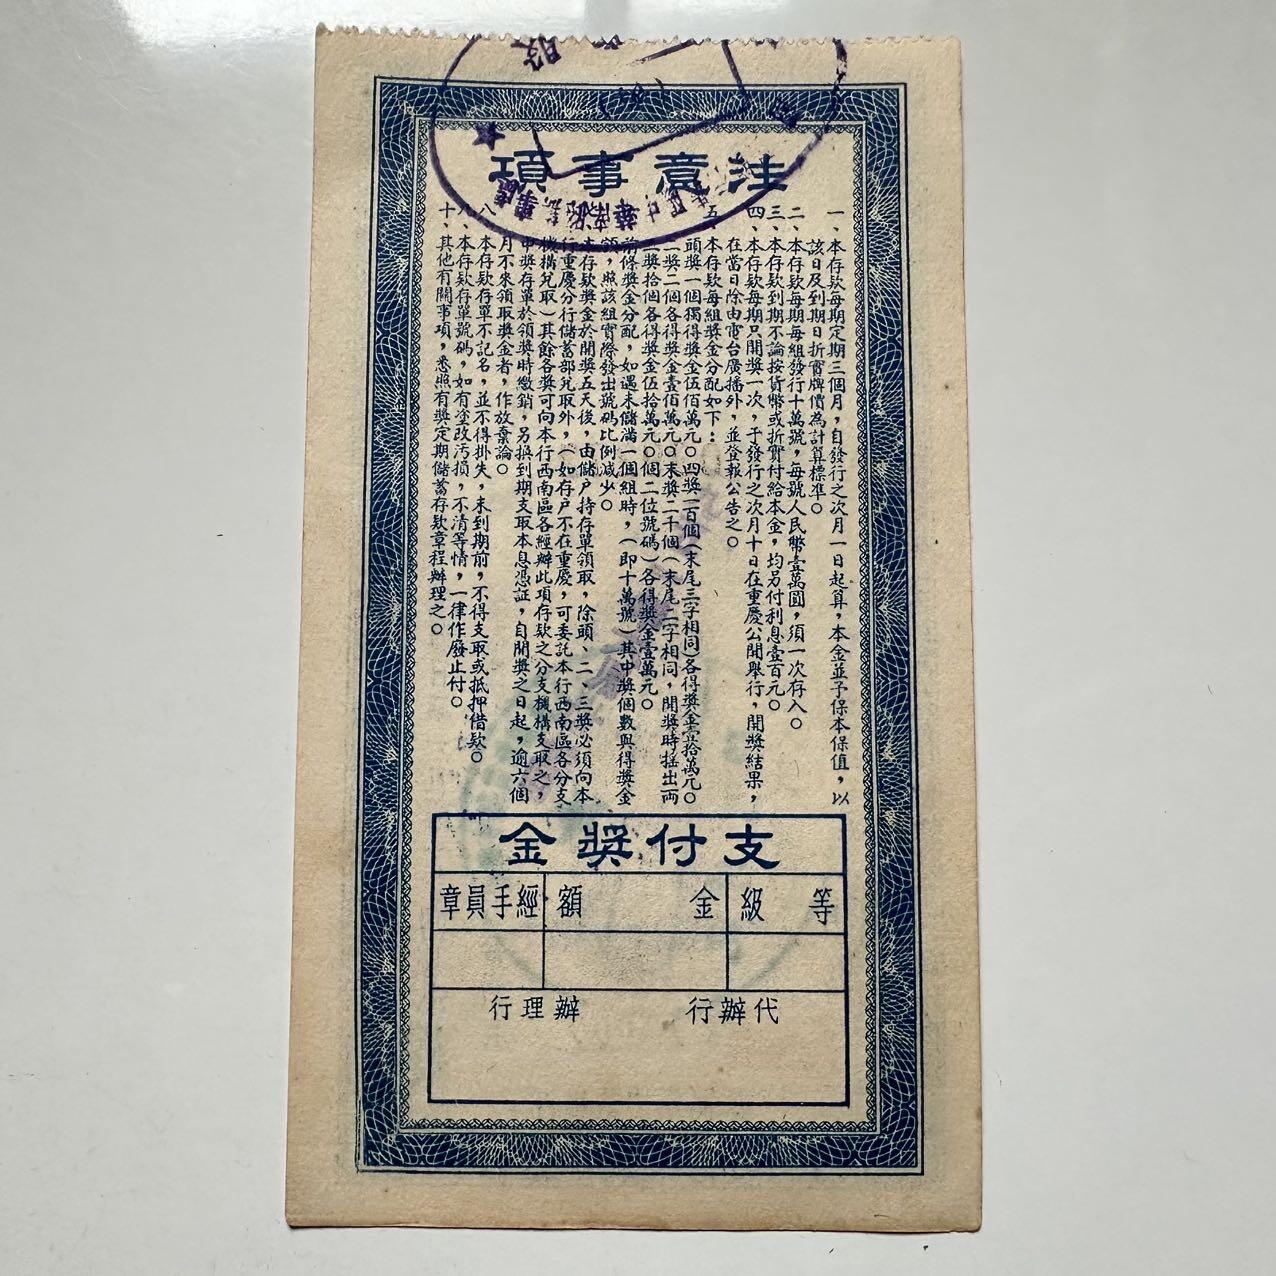 注意事項
一、本存款每期定期三個月，自發行之次月一日起算，本金並予保本保值，以
該日及到期日折實牌價為計算標準。
二、本存款每期每組發行十萬號，每號人民幣壹萬圓，須一次存入。
三、本存款到期不論按貨幣或折實付給本金，均另付利息壹百元。
四、本存款每期只開獎一次，于發行之次月十日在重慶公開舉行，開獎結果，
在當日除由電台廣播外，並登報公告之。
五、本存款每組獎金分配如下：
頭獎一個獨得獎金伍佰萬元。四獎一百個（末尾三字相同）各得獎金壹拾萬元。
二獎二個各得獎金壹佰萬元。末獎二千個（末尾二字相同，開獎時搖出兩
三獎拾個各得獎金伍拾萬元。個二位號碼）各得獎金壹萬元。
前條獎金分配，如遇未儲滿一個組時，（即十萬號）其中獎個數與得獎金
額，照該組實際發出號碼比例減少。
本存款獎金於開獎五天後，由儲戶持存單領取，除頭、二、三獎必須向本
行重慶分行儲蓄部兌取外，（如存戶不在重慶，可委託本行西南區各分支
機構兌取）其餘各獎可向本行西南區各經辦此項存款之分支機構支取之，
中獎存單於領獎時繳銷，另換到期支取本息憑証，自開獎之日起，逾六個
月不來領取獎金者，作放棄論。
八、本存款存單不記名，並不得掛失，未到期前，不得支取或抵押借款。
本存款存單號碼，如有塗改污損，不清等情，一律作廢止付。
十、其他有關事項，悉照有獎定期儲蓄存款章程辦理之。
支付獎金
等級 金額 經手員章
代辦行 辦理行